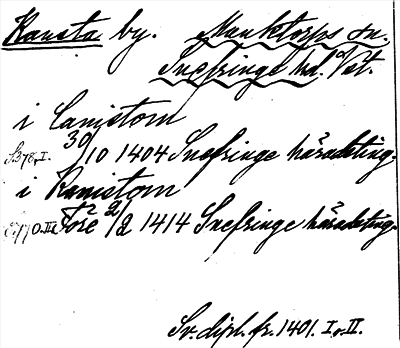 Kansta by. Munktorps sn.
Snefringe hd. Vst.
i Canistom
S. 378, I. 30/10 1404 Snefringe häradsting.
i Kanistom
Före 2/2 1414 Snefringe häradsting.
Sv. dipl. fr. 1401. I o. II.